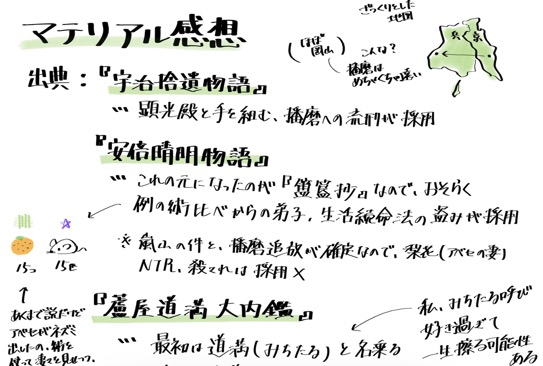 マテリアル感想
ざっくりとした
地図
兵 京
(ほぼ
岡山)
こんな?
播磨は
めちゃくちゃ遠い
出典:『宇治拾遺物語』
… 顕光殿と手を組む、播磨への流刑が採用
『安倍晴明物語』
… これの元になったのが『簠簋抄』なので、おそらく
例の術比べからの弟子、生活続命法の盗みが採用
※ 嵐山の件と、播磨追放が確定なので、梨花(アベセの妻)
NTR、殺されは採用×
15コ 15匹
↑
あくまで説だけど
アベセがネズミ
出したの、術を
使って妻々を見せつつ。
『蘆屋道満大内鑑』
… 最初は道満(みちたる)と名乗る
私、みちたる呼び
好き過ぎて
一生擦る可能性
ある